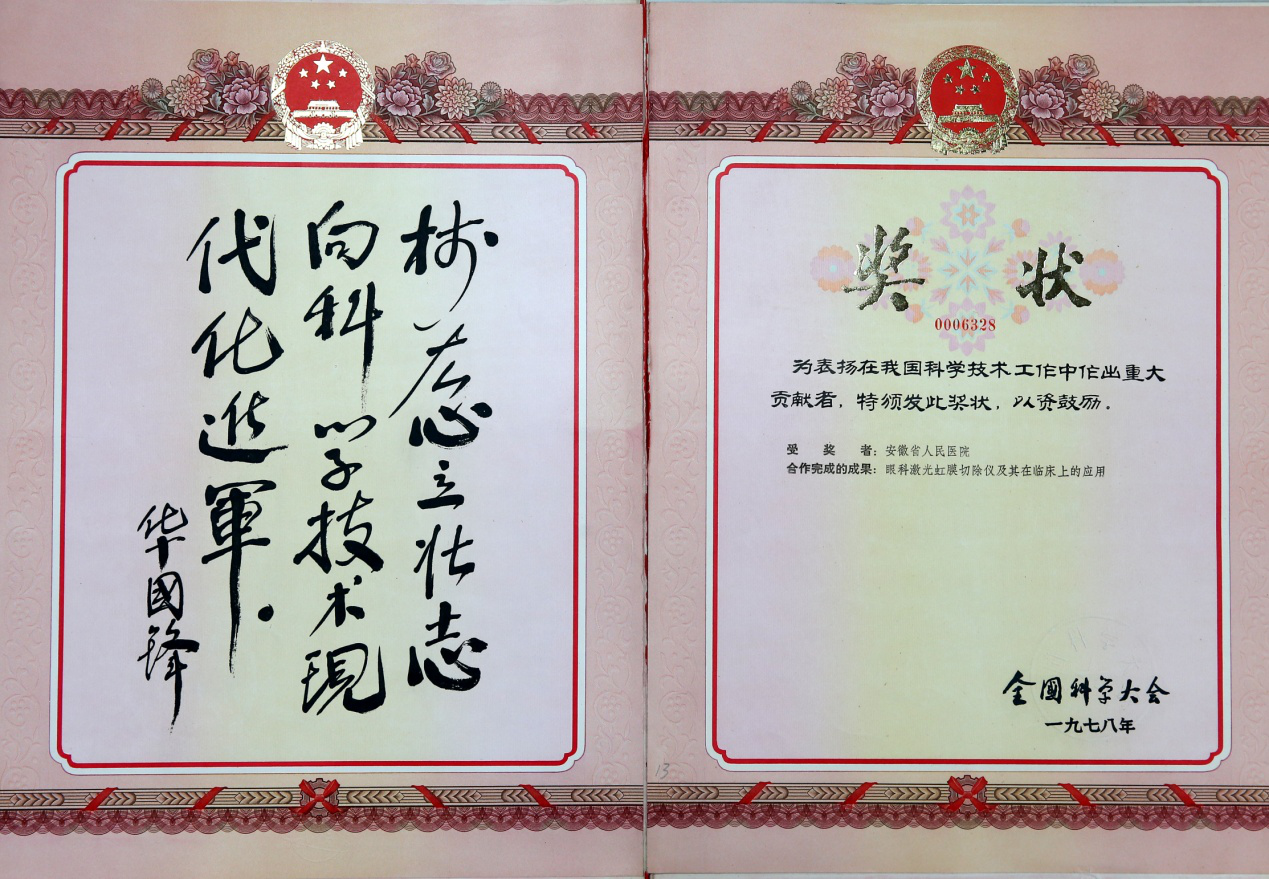 树雄心立壮志
向科学技术現
代化進軍。
华國锋
奖状
0006328
为表扬在我国科学技术工作中作出重大
贡献者，特颁发此奖状，以资鼓励。
受奖者：安徽省人民医院
合作完成的成果：眼科激光虹膜切除仪及其在临床上的应用
全國科学大会
一九七八年
13